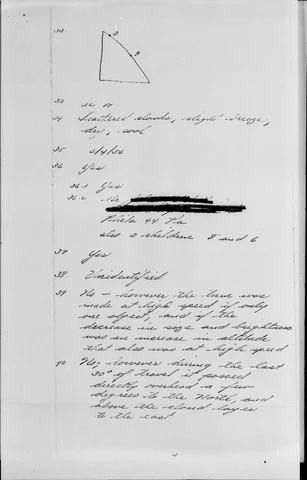 32
B
A
33 u n
34 Scattered clouds, slight breeze,
dry, cool
35 6/4/56
36 Yes
36.1 Yes
36.2 Mr.
Phila 44 Pa
also 2 children 8 and 6
37 Yes
38 Unidentified
39 No - however the turn was
made at high speed if only
one object, and if the
decrease in size and brightness
was an increase in altitude
that also was at high speed
40 No, however during the last
30° of travel it passed
directly overhead a few
degrees to the North, and
above the cloud layer
to the east